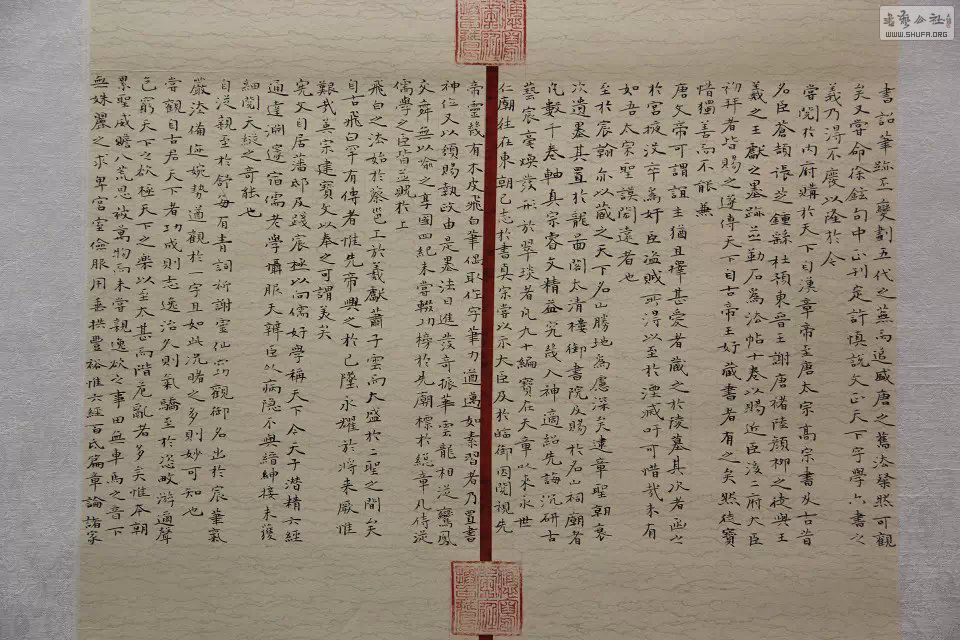 書詔筆跡丕變劃五代之蕪而追盛唐之舊法粲然可觀
矣又嘗命徐鉉句中正刊定許慎說文正天下字學六書之
義乃得不廢以隆於今
嘗閱於內府購於天下自漢章帝至唐太宗高宗書及古昔
名臣蒼頡張芝鍾繇杜預東晉王謝唐褚陸顏柳之徒與王
羲之王獻之墨跡並勒石為法帖十卷以賜近臣後二府大臣
初拜者皆賜之遂傳天下自古帝王好藏書者有之矣然徒寶
惜獨善而不能兼
唐文帝可謂誼主猶且擇甚愛者藏之於陵墓其次者函之
於宮掖沒卒為奸臣盜賊所得以至於湮滅吁可惜哉未有
如吾太宗聖謨閎遠者也
至於宸翰亦以藏之天下名山勝地為慮深矣逮章聖朝裒
次遺墨其置於龍圖閣太清樓御書院及賜於名山祠廟者
凡數千卷軸真宗睿文精益究幾入神適紹先誨沉研古
藝宸毫煥發形於翠琰者凡九十編寶在天章以永永世
仁廟往在東朝已志於書真宗嘗以示大臣及於臨御因閱視先
帝靈幾有木皮飛白筆偶取作字筆力遒邁如素習者乃置書
神位又以頒賜執政由是墨法日進發奇振華雲龍相從鸞鳳
交舞無以喻之享國四紀未嘗輟功榜於先廟標於絕章凡侍從
儒學之臣皆並覬於上
飛白之法始於蔡邕工於羲獻蕭子雲而大盛於二聖之間矣
自古飛白罕有傳者惟先帝興之於已墜永耀於將來厥惟
艱哉英宗建寶文以奉之可謂美矣
憲文自居藩邸及踐宸極以向儒好學稱天下今天子潛精六經
通達淵邃宿儒老學懾服天辯臣以病隱不與縉紳接未獲
細聞天縱之奇能也
自從親至於舒每有青詞祈謝靈仙西觀御名出於宸筆氣
嚴法備遊婉勢適觀於一字且如此況睹之多則妙可知也
嘗觀自古居天下者功成則志逸治久則氣驕至於恣畋游適聲
色窮天下之欲極天下之樂以至太甚而階危亂者多矣惟本朝
累聖威瞻八荒恩被萬物而未嘗親逸欲之事田無車馬之音下
無姝麗之求卑宮室儉服用垂拱豐裕惟六經百氏篇章論諸家
書藝公社
WWW.SHUFA.ORG